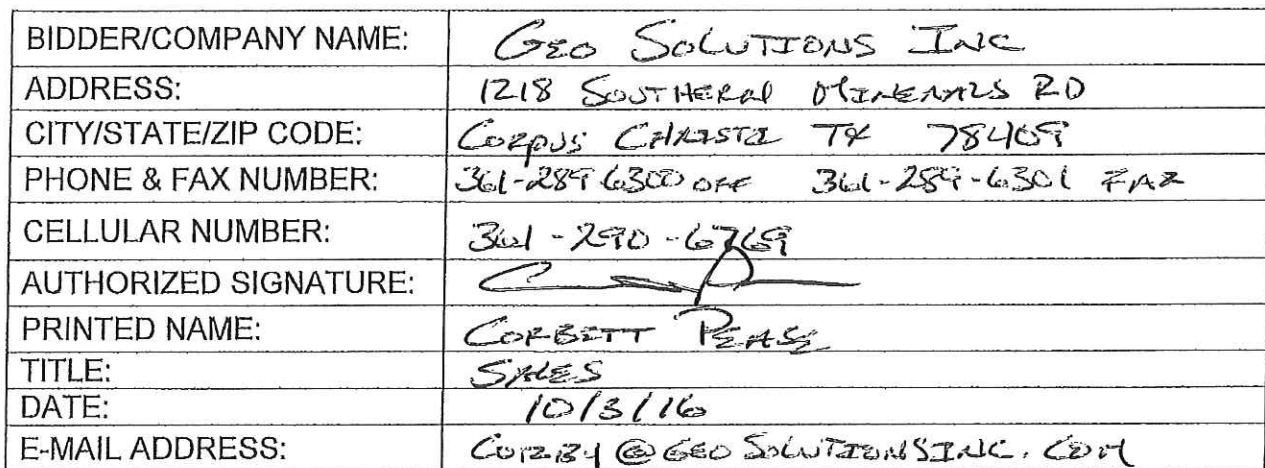 BIDDER/COMPANY NAME: GEO SOLUTIONS INC
ADDRESS: 1218 SOUTHERN MINERALS RD
CITY/STATE/ZIP CODE: CORPUS CHRISTI TX 78409
PHONE & FAX NUMBER: 361-289-6300 OFF 361-289-6301 FAX
CELLULAR NUMBER: 361-290-6769
AUTHORIZED SIGNATURE:
PRINTED NAME: CORBETT PEASE
TITLE: SALES
DATE: 10/3/16
E-MAIL ADDRESS: CORBY@GEOSOLUTIONSINC.COM